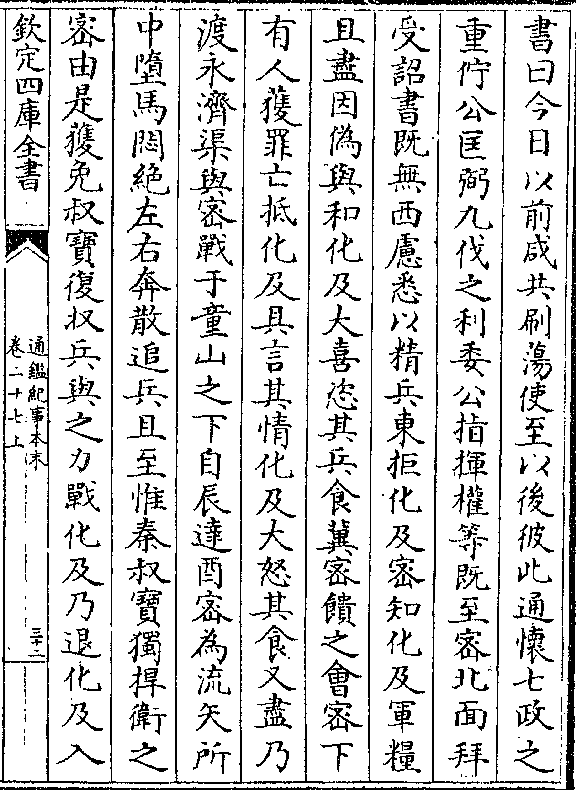 書曰今日以前咸共刷蕩使至以後彼此通懷七政之
重佇公匡弼九伐之利委公指揮權等既至密北面拜
受詔書既無西慮悉以精兵東拒化及密知化及軍糧
且盡因偽與和化及大喜恣其兵食冀密饋之會密下
有人獲罪亡抵化及具言其情化及大怒其食又盡乃
渡永濟渠與密戰于童山之下自辰達酉密為流矢所
中墮馬悶絶左右奔散追兵且至惟秦叔寶獨捍衛之
密由是獲免叔寶復收兵與之力戰化及乃退化及入
欽定四庫全書
通鑑紀事本末
卷二十七上
三十二